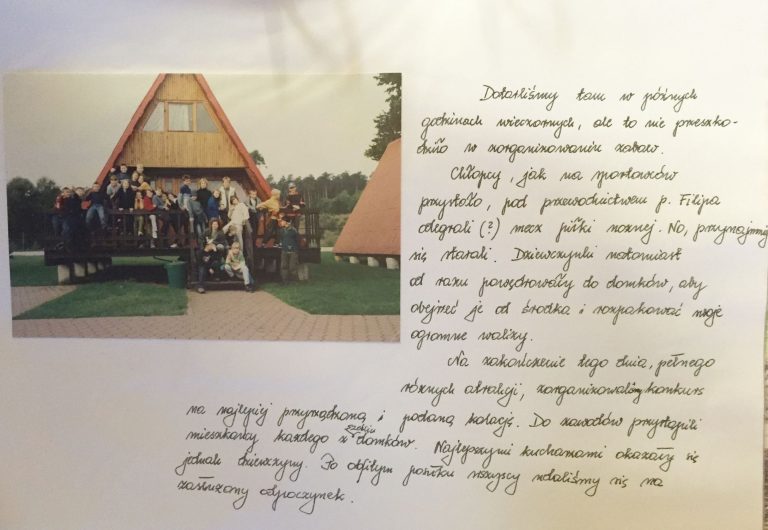 Dotarliśmy tam w późnych
godzinach wieczornych, ale to nie przeszko-
dziło w zorganizowaniu zabaw.
Chłopcy, jak na sportowców
przystało, pod przewodnictwem p. Filipa
odegrali (?) mecz piłki nożnej. No, przynajmniej
się starali. Dziewczynki natomiast
od razu powędrowały do domków, aby
obejrzeć je od środka i rozpakować swoje
ogromne walizy.
Na zakończenie tego dnia, pełnego
różnych atrakcji, zorganizowaliśmy konkurs
na najlepiej przyrządzoną i podaną kolację. Do zawodów przystąpili
mieszkańcy każdego z sześciu domków. Najlepszymi kucharzami okazały się
jednak dziewczyny. Po obfitym posiłku wszyscy udaliśmy się na
zasłużony odpoczynek.